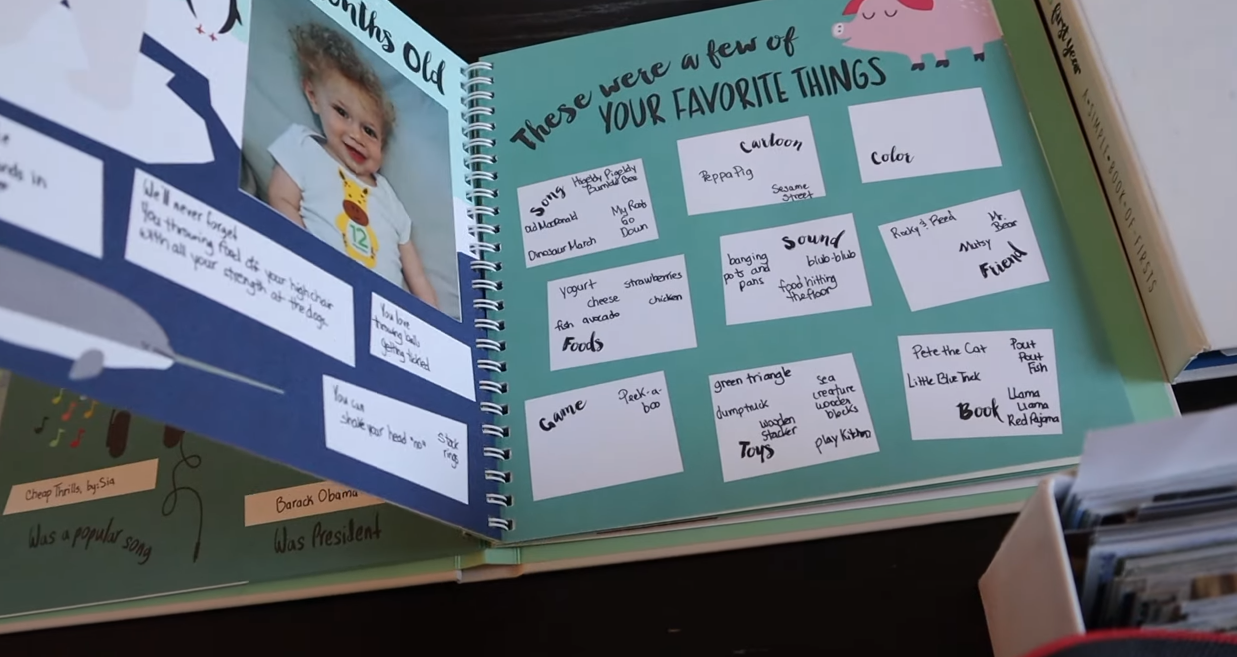 nths Old
ands in
We'll never forget
you throwing food off your highchair
with all your strength at the dogs.
You love
throwing balls
getting tickled
You can
shake your head "no"
Stack
rings
12
Cheap Thrills, by: Sia
Was a popular song
Barack Obama
Was President
These were a few of
YOUR FAVORITE THINGS
Song
Old MacDonald
My Roots
Go
Down
Dinosaur March
Cartoon
Peppa Pig
Sesame
Street
Color
yogurt
strawberries
cheese
chicken
fish
avocado
Foods
Sound
banging
pots and
pans
blub-blub
food hitting
the floor
Rocky & Reed
Mr.
Bear
Nutsy
Friend
Game
Peek-a-
boo
green triangle
sea
creature
wooden
blocks
dumptruck
wooden
stacker
Toys
play kitchen
Pete the Cat
Pout
Pout
Fish
Little Blue Truck
Book
Llama
Llama
Red Pajama
first year
A SIMPLE BOOK OF FIRSTS